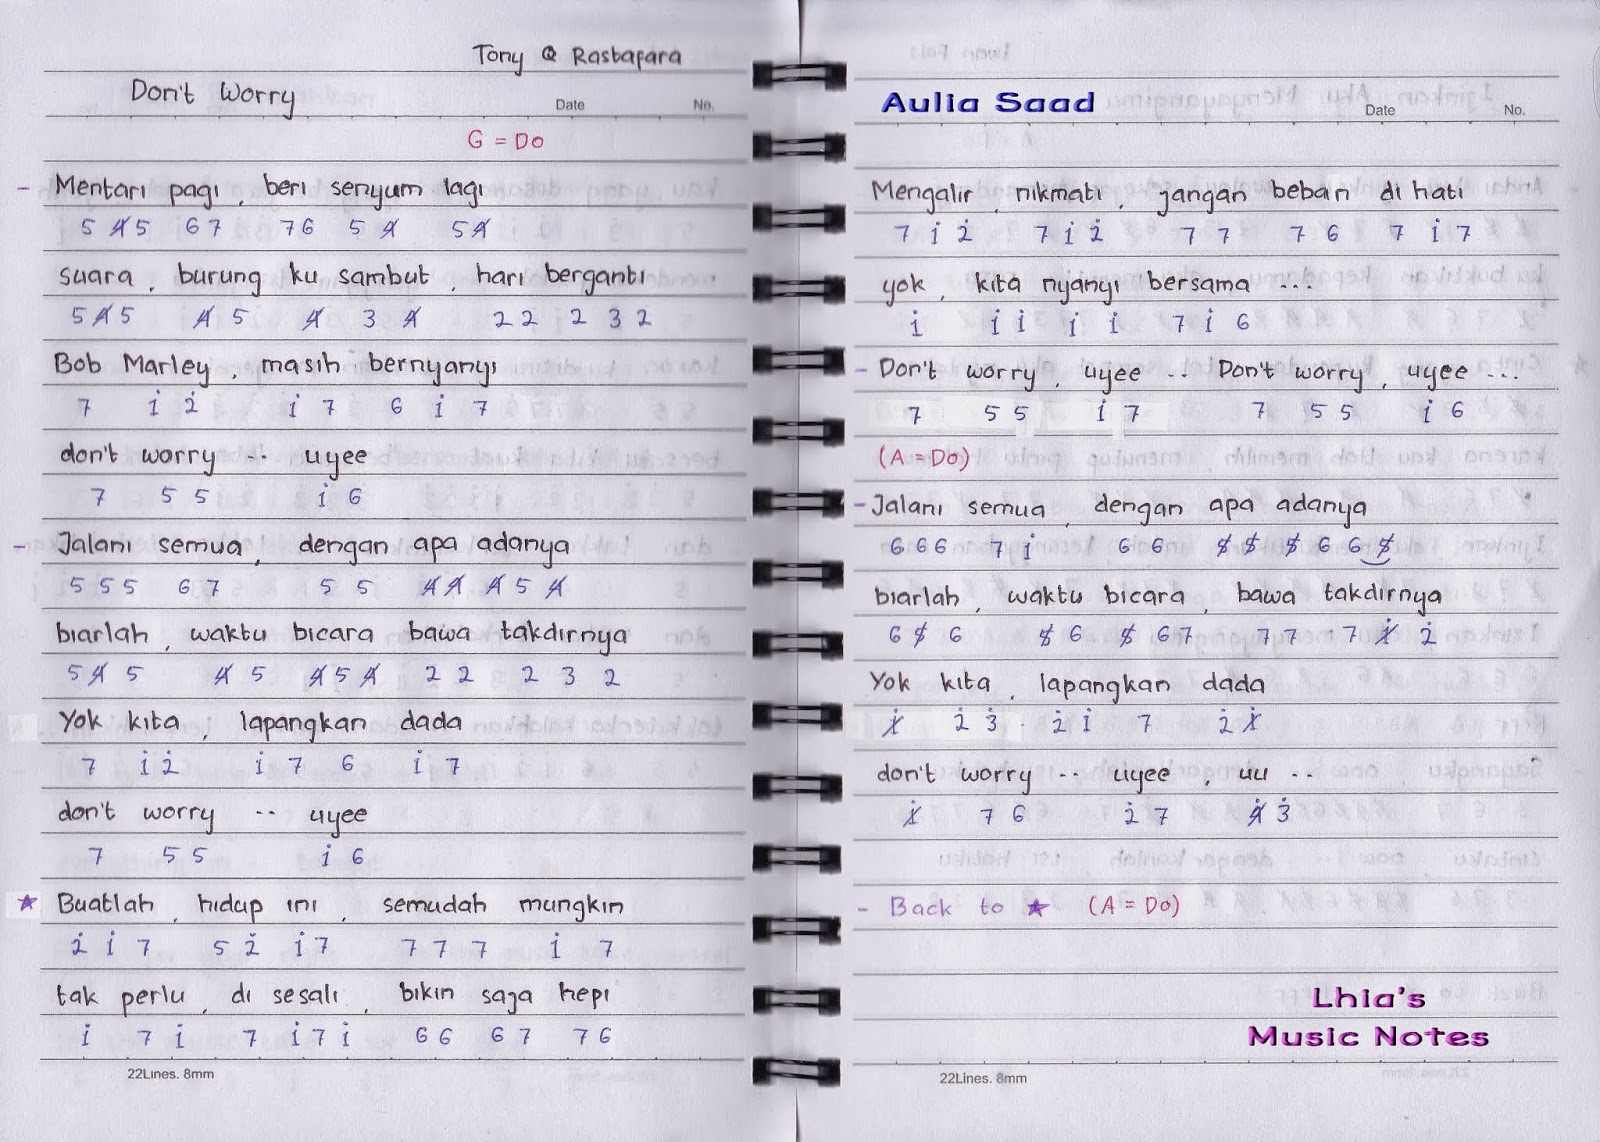 Tony Q Rastafara
Don't Worry
Date No.
G = Do
- Mentari pagi, beri senyum lagi
5 4̸ 5 6 7 7 6 5 4̸ 5 4̸
suara, burung ku sambut, hari berganti
5 4̸ 5 4̸ 5 4̸ 3 4̸ 2 2 2 3 2
Bob Marley, masih bernyanyi
7 1̇ 2̇ 1̇ 7 6 1̇ 7
don't worry -- uyee
7 5 5 1̇ 6
- Jalani semua, dengan apa adanya
5 5 5 6 7 5 5 4̸ 4̸ 4̸ 5 4̸
biarlah, waktu bicara bawa takdirnya
5 4̸ 5 4̸ 5 4̸ 5 4̸ 2 2 2 3 2
Yok kita, lapangkan dada
7 1̇ 2̇ 1̇ 7 6 1̇ 7
don't worry -- uyee
7 5 5 1̇ 6
★ Buatlah, hidup ini, semudah mungkin
2̇ 1̇ 7 5 2̇ 1̇ 7 7 7 7 1̇ 7
tak perlu, di sesali, bikin saja hepi
1̇ 7 1̇ 7 1̇ 7 1̇ 6 6 6 7 7 6
22Lines. 8mm
Aulia Saad
Date No.
Mengalir, nikmati, jangan beban di hati
7 1̇ 2̇ 7 1̇ 2̇ 7 7 7 6 7 1̇ 7
yok, kita nyanyi bersama ...
1̇ 1̇ 1̇ 1̇ 1̇ 7 1̇ 6
- Don't worry, uyee -- Don't worry, uyee ...
7 5 5 1̇ 7 7 5 5 1̇ 6
(A = Do)
- Jalani semua, dengan apa adanya
6 6 6 7 1̇ 6 6 5̸ 5̸ 5̸ 6 6 5̸
biarlah, waktu bicara, bawa takdirnya
6 5̸ 6 5̸ 6 5̸ 6 7 7 7 7 1̸̇ 2̇
Yok kita, lapangkan dada
1̸̇ 2̇ 3̇ 2̇ 1̇ 7 2̇ 1̸̇
don't worry -- uyee, uu --
1̸̇ 7 6 2̇ 7 4̸̇ 3̇
- Back to ★ (A = Do)
Lhia's
Music Notes
22Lines. 8mm